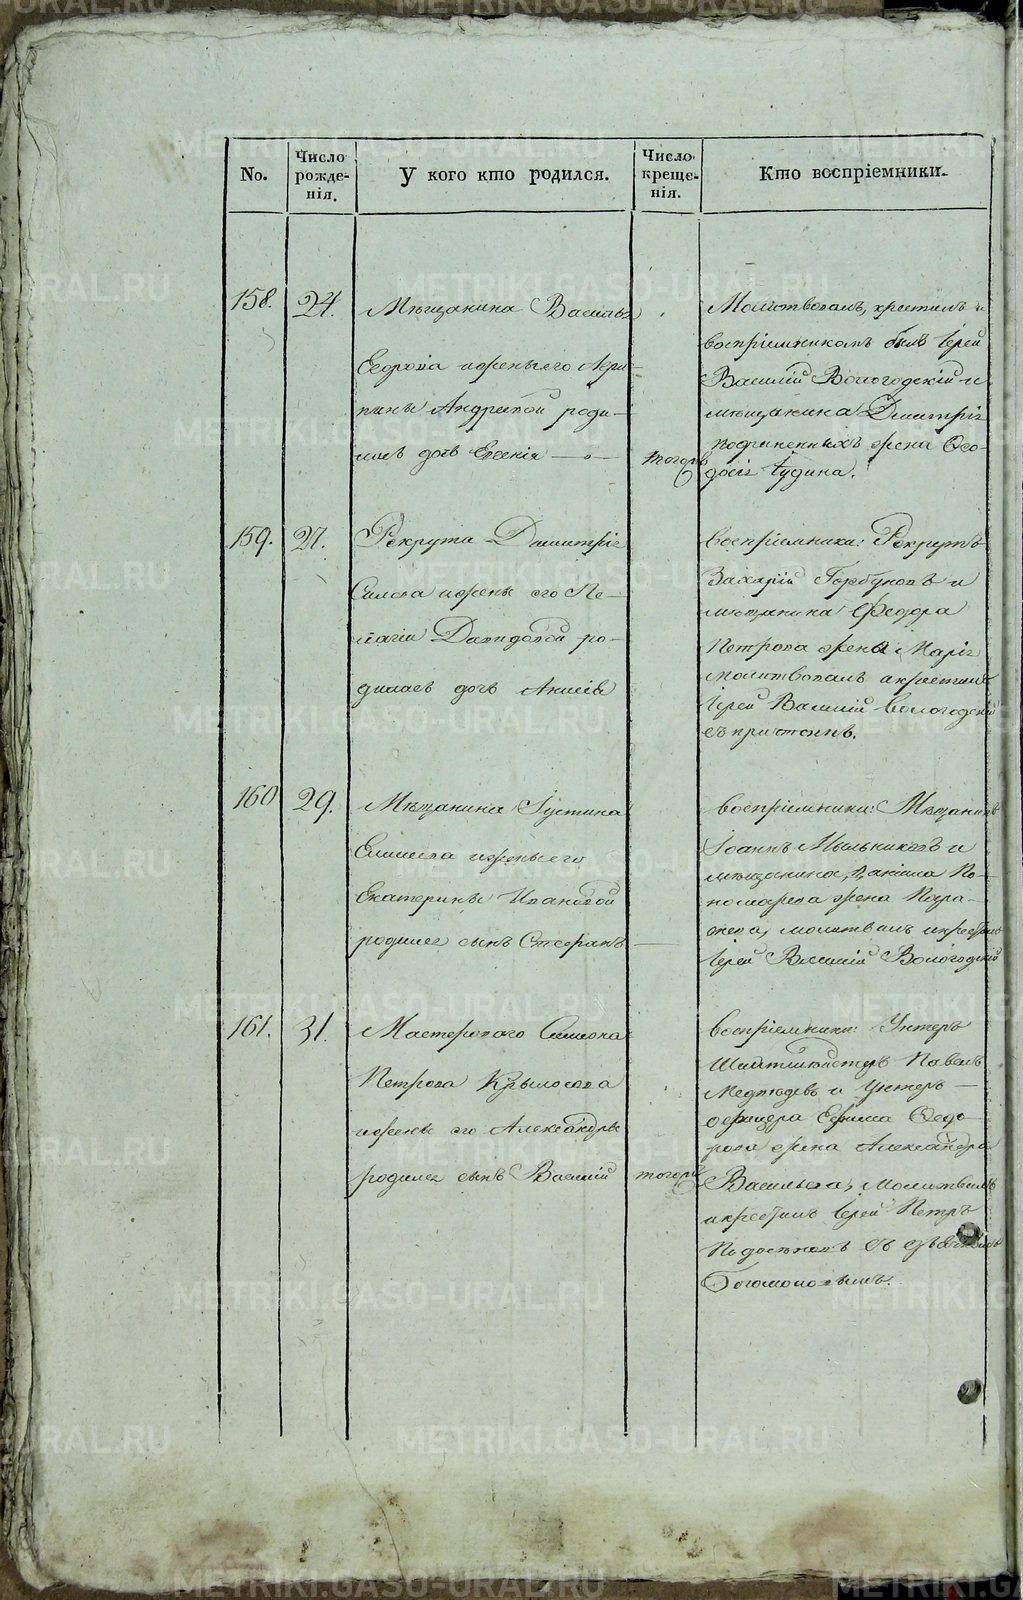 No.
Число рожде-
нія.
У кого кто родился.
Число креще-
нія.
Кто воспріемники.
158.
24.
Мѣщанина Василья
Егорова и жены его Агри-
пины Андреевой роди-
лась дочь Евгенія
тогожъ
Молитвовалъ, крестилъ и
воспріемникомъ былъ Іерей
Василій Вологодскій и
мѣщанина Дмитрія
жена Ѳео-
досія Іудина.
159.
27.
Рекрута Дмитрія
и жены его Пе-
лагіи Давидовой ро-
дилась дочь
воспріемники: Рекрутъ
Захарій Горбуновъ и
мѣщанина Феодора
Петрова жена Марія
молитвовалъ и крестилъ
Іерей Василій Вологодскій
съ причтомъ.
160
29.
Мѣщанина Іустина
и жены его
Екатерины Ивановой
родился сынъ Стефанъ
воспріемники: Мѣщанинъ
Іоаннъ Мыльниковъ и
мѣщанина По-
номарева жена Пара-
скева, молитвовалъ и крестилъ
Іерей Василій Вологодскій
161.
31.
Мастероваго Симеона
Петрова Крылосова
и жены его Александры
родился сынъ Василій
тогожъ
воспріемники: Унтеръ
Шихтмейстеръ Павелъ
и Унтеръ
офицера Ефима Ѳедо-
рова жена Александра
Васильева, Молитвовалъ
и крестилъ Іерей Петръ
съ
Богомоловымъ.
METRIKI.GASO-URAL.RU